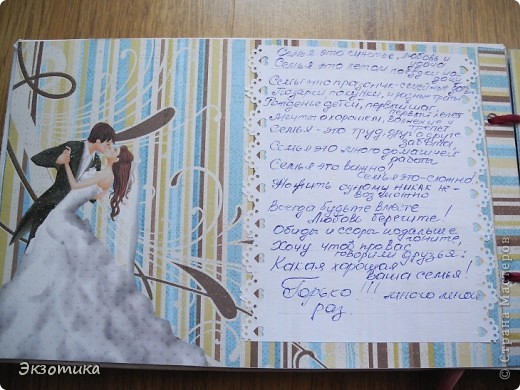 Семья это счастье, любовь и
удача
Семья это летом поездки на
дачу
Семья это праздник, семейные даты
Подарки покупки, приятные траты
Рождение детей, первый шаг
первый лепет
Мечты о хорошем, волнение и
трепет
Семья - это труд, друг о друге
забота
Семья это много домашней
работы
Семья это важно
Семья это-сложно!
Но жить одному никак не-
возможно
Всегда будьте вместе
Любовь берегите!
Обиды и ссоры подальше
гоните,
Хочу чтоб про вас
говорили друзья:
Какая хорошая
ваша семья!
Горько!!! много много
раз.
Экзотика
© Страна Мастеров